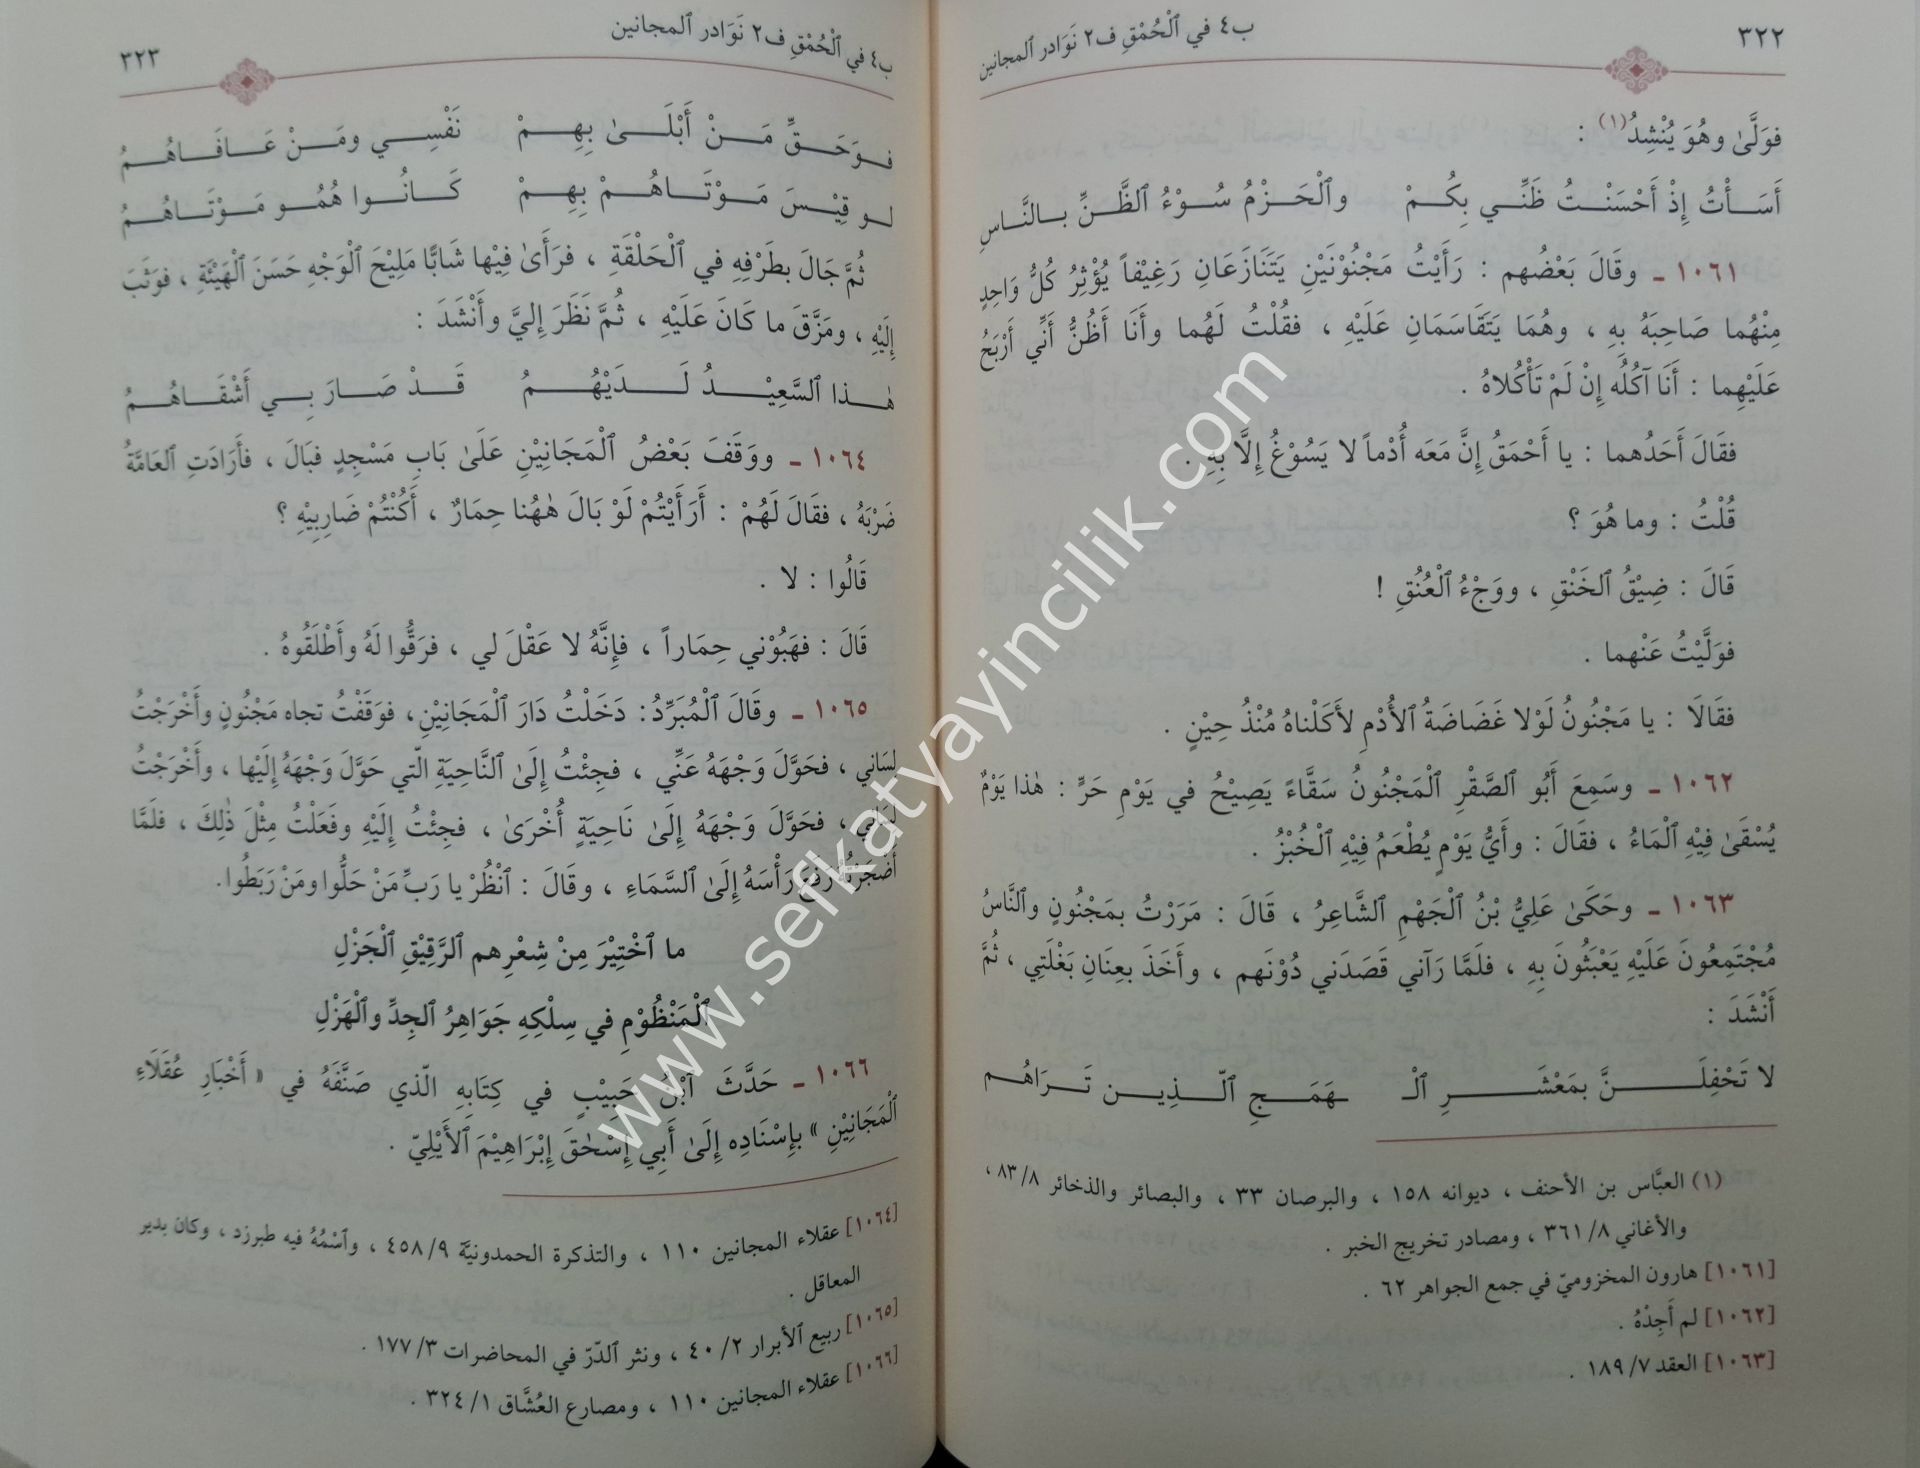 ٣٢٢
ب٤ في ٱلْحُمْقِ ف٢ نَوَادر ٱلمجانين
فوَلَّىٰ وهُوَ يُنْشِدُ(١) :
أَسَـأْتُ إِذْ أَحْسَنْـتُ ظَنِّـي بِكُـمْ وٱلْحَـزْمُ سُـوْءُ ٱلظَّـنِّ بـالنَّـاسِ
١٠٦١ ـ وقَالَ بَعْضُهم : رَأَيْتُ مَجْنُوْنَيْنِ يَتَنَازَعَانِ رَغِيْفاً يُؤْثِرُ كُلُّ وَاحِدٍ
مِنْهُما صَاحِبَهُ بِهِ ، وهُمَا يَتَقَاسَمَانِ عَلَيْهِ ، فقُلْتُ لَهُما وأَنَا أَظُنُّ أَنِّي أَرْبَحُ
عَلَيْهِما : أَنَا آكُلُه إِنْ لَمْ تَأْكُلاهُ .
فقَالَ أَحَدُهما : يا أَحْمَقُ إِنَّ مَعَه أُدْماً لا يَسُوْغُ إِلَّا بِهِ .
قُلْتُ : وما هُوَ ؟
قَالَ : ضِيْقُ ٱلخَنْقِ ، ووَجْءُ ٱلْعُنُقِ !
فوَلَّيْتُ عَنْهما .
فقَالَا : يا مَجْنُونُ لَوْلا غَضَاضَةُ ٱلأُدْمِ لأَكَلْناهُ مُنْذُ حِيْنٍ .
١٠٦٢ ـ وسَمِعَ أَبُو ٱلصَّقْرِ ٱلْمَجْنُونُ سَقَّاءً يَصِيْحُ في يَوْمِ حَرٍّ : هٰذا يَوْمٌ
يُسْقَىٰ فِيْهِ ٱلْمَاءُ ، فقَالَ : وأَيُّ يَوْمٍ يُطْعَمُ فِيْهِ ٱلْخُبْزُ .
١٠٦٣ ـ وحَكَىٰ عَلِيُّ بْنُ ٱلْجَهْمِ ٱلشَّاعِرُ ، قَالَ : مَرَرْتُ بمَجْنُونٍ وٱلنَّاسُ
مُجْتَمِعُونَ عَلَيْهِ يَعْبَثُونَ بِهِ ، فلَمَّا رَآني قَصَدَني دُوْنَهم ، وأَخَذَ بعِنَانِ بَغْلَتِي ، ثُمَّ
أَنْشَدَ :
لا تَحْفِلَـــنَّ بمَعْشَـــرِ ٱلْـ ـهَمَـجِ ٱلّـذِيـن تَـرَاهُـم
(١) العبَّاس بن الأحنف ، ديوانه ١٥٨ ، والبرصان ٣٣ ، والبصائر والذخائر ٨/ ٨٣ ،
والأغاني ٨/ ٣٦١ ، ومصادر تخريج الخبر .
[١٠٦١] هارون المخزوميّ في جمع الجواهر ٦٢ .
[١٠٦٢] لم أَجِدْهُ .
[١٠٦٣] العقد ٧/ ١٨٩ .
ب٤ في ٱلْحُمْقِ ف٢ نَوَادر ٱلمجانين
٣٢٣
فـوَحَـقِّ مَـنْ أَبْلَـىٰ بِهِـمْ نَفْسِـي ومَـنْ عَـافَـاهُـمُ
لـو قِيْـسَ مَـوْتَـاهُـمْ بِهِـمْ كَـانُـوا هُمُـو مَـوْتَـاهُـمُ
ثُمَّ جَالَ بطَرْفِهِ في ٱلْحَلْقَةِ ، فرَأَىٰ فِيْها شَابًّا مَلِيْحَ ٱلْوَجْهِ حَسَنَ ٱلْهَيْئَةِ ، فوَثَبَ
إِلَيْهِ ، ومَزَّقَ ما كَانَ عَلَيْهِ ، ثُمَّ نَظَرَ إِليَّ وأَنْشَدَ :
هٰـذا ٱلسَّعِيْـدُ لَـدَيْهُـمُ قَـدْ صَـارَ بِـي أَشْقَـاهُـمُ
١٠٦٤ ـ ووَقَفَ بَعْضُ ٱلْمَجَانِيْنِ عَلَىٰ بَابِ مَسْجِدٍ فبَالَ ، فأَرَادَتِ ٱلعَامَّةُ
ضَرْبَهُ ، فقَالَ لَهُمْ : أَرَأَيْتُمْ لَوْ بَالَ هٰهُنا حِمَارٌ ، أَكُنْتُمْ ضَارِبِيْهِ ؟
قَالُوا : لا .
قَالَ : فهَبُوْني حِمَاراً ، فإِنَّهُ لا عَقْلَ لي ، فرَقُّوا لَهُ وأَطْلَقُوهُ .
١٠٦٥ ـ وقَالَ ٱلْمُبَرِّدُ : دَخَلْتُ دَارَ ٱلْمَجَانِيْنِ، فوَقَفْتُ تجاه مَجْنُونٍ وأَخْرَجْتُ
لِسَاني ، فحَوَّلَ وَجْهَهُ عَنِّي ، فجِئْتُ إِلَىٰ ٱلنَّاحِيَةِ ٱلّتي حَوَّلَ وَجْهَهُ إِلَيْها ، وأَخْرَجْتُ
لِسَاني ، فحَوَّلَ وَجْهَهُ إِلَىٰ نَاحِيَةٍ أُخْرَىٰ ، فجِئْتُ إِلَيْهِ وفَعَلْتُ مِثْلَ ذٰلِكَ ، فلَمَّا
أَضْجَرْتُهُ رَفَعَ رَأْسَهُ إِلَىٰ ٱلسَّمَاءِ ، وقَالَ : ٱنْظُرْ يا رَبِّ مَنْ حَلُّوا ومَنْ رَبَطُوا .
ما ٱخْتِيْرَ مِنْ شِعْرِهم ٱلرَّقِيْقِ ٱلْجَزْلِ
ٱلْمَنْظُوْمِ في سِلْكِهِ جَوَاهِرُ ٱلجِدِّ وٱلْهَزْلِ
١٠٦٦ ـ حَدَّثَ ٱبْنُ حَبِيْبٍ في كِتَابِهِ ٱلّذي صَنَّفَهُ في « أَخْبَارِ عُقَلَاءِ
ٱلْمَجَانِيْنِ » بإِسْنَادِه إِلَىٰ أَبِي إِسْحٰقَ إِبْرَاهِيْمَ ٱلأَيْلِيّ .
[١٠٦٤] عقلاء المجانين ١١٠ ، والتذكرة الحمدونيَّة ٩/ ٤٥٨ ، وٱسْمُهُ فيه طبرزد ، وكان بدير
المعاقل .
[١٠٦٥] ربيع ٱلأبرار ٢/ ٤٠ ، ونثر ٱلدّرّ في المحاضرات ٣/ ١٧٧ .
[١٠٦٦] عقلاء المجانين ١١٠ ، ومصارع العُشَّاق ١/ ٣٢٤ .
www.sefkatyayincilik.com